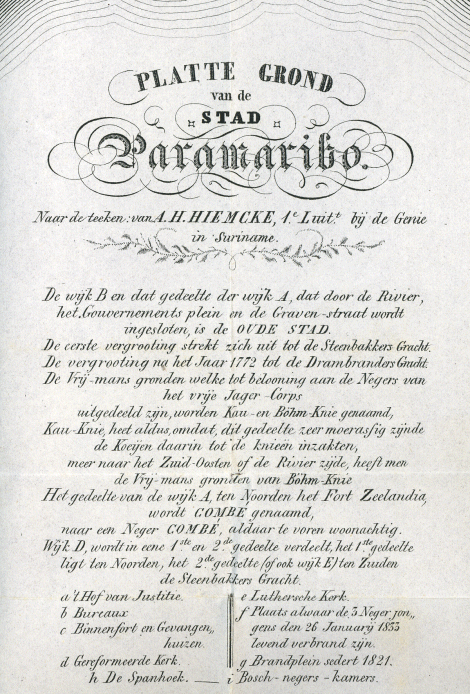 PLATTE GROND
van de
STAD
Paramaribo.
Naar de teeken: van A. H. HIEMCKE, 1.e Luit.t bij de Genie
in Suriname.
De wijk B en dat gedeelte der wijk A, dat door de Rivier,
het Gouvernements plein en de Graven-straat wordt
ingesloten, is de OUDE STAD.
De eerste vergrooting strekt zich uit tot de Steenbakkers Gracht.
De vergrooting na het Jaar 1772 tot de Drambranders Gracht.
De Vrij-mans gronden welke tot belooning aan de Negers van
het vrije Jager-Corps
uitgedeeld zijn, worden Kau- en Böhm-Knie genaamd,
Kau-Knie, heet aldus, omdat, dit gedeelte zeer moerassig zijnde
de Koeijen daarin tot de knieën inzakten,
meer naar het Zuid-Oosten of de Rivier zijde, heeft men
de Vrij-mans gronden van Böhm-Knie
Het gedeelte van de wijk A, ten Noorden het Fort Zeelandia,
wordt COMBÉ genaamd,
naar een Neger COMBÉ, aldaar te voren woonachtig.
Wijk D, wordt in eene 1ste en 2de gedeelte verdeelt, het 1ste gedeelte
ligt ten Noorden, het 2de gedeelte (of ook wijk E) ten Zuiden
de Steenbakkers Gracht.
a 't Hof van Justitie.
b Bureaux
c Binnenfort en Gevangen„
huizen.
d Gereformeerde Kerk.
h De Spanhoek.
e Luthersche Kerk.
f Plaats alwaar de 3 Neger jon„
gens den 26 Januarij 1833
levend verbrand zijn.
g Brandplein sedert 1821.
i Bosch-negers-kamers.